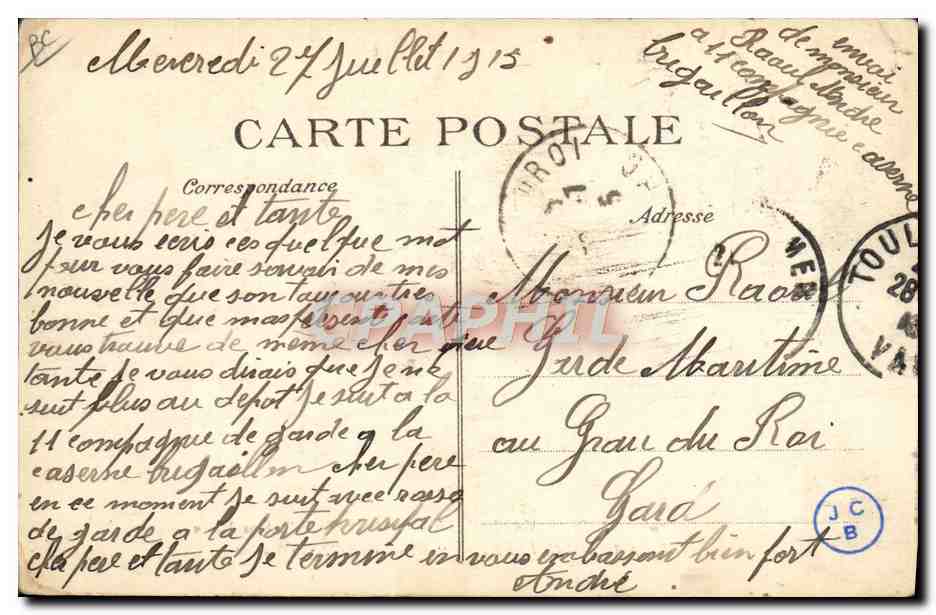 BC
Mercredi 27 Juillet 1915
envoi
de monsieur
Raoul Andre
a 11 compagnie caserne
brigaillon
CARTE POSTALE
Correspondance
Adresse
cher pere et tante
Je vous ecris ces quelque mot
pour vous faire servair de mes
nouvelle que son toujour tres
bonne et que mas present carte
vous trouve de meme cher que
tante Je vous dirais que Je ne
suit plus au depot Je suit a la
11 compagnie de garde a la
caserne brigaillon cher pere
en ce moment Je suit avec
de garde a la porte
cher pere et tante Je termine en vous enbassent bien fort
André
Monsieur Raoul
Garde Maritime
au Grau du Roi
Gard
TOUL
28
VA
MER
27
15
CPAPHIL
J C
B